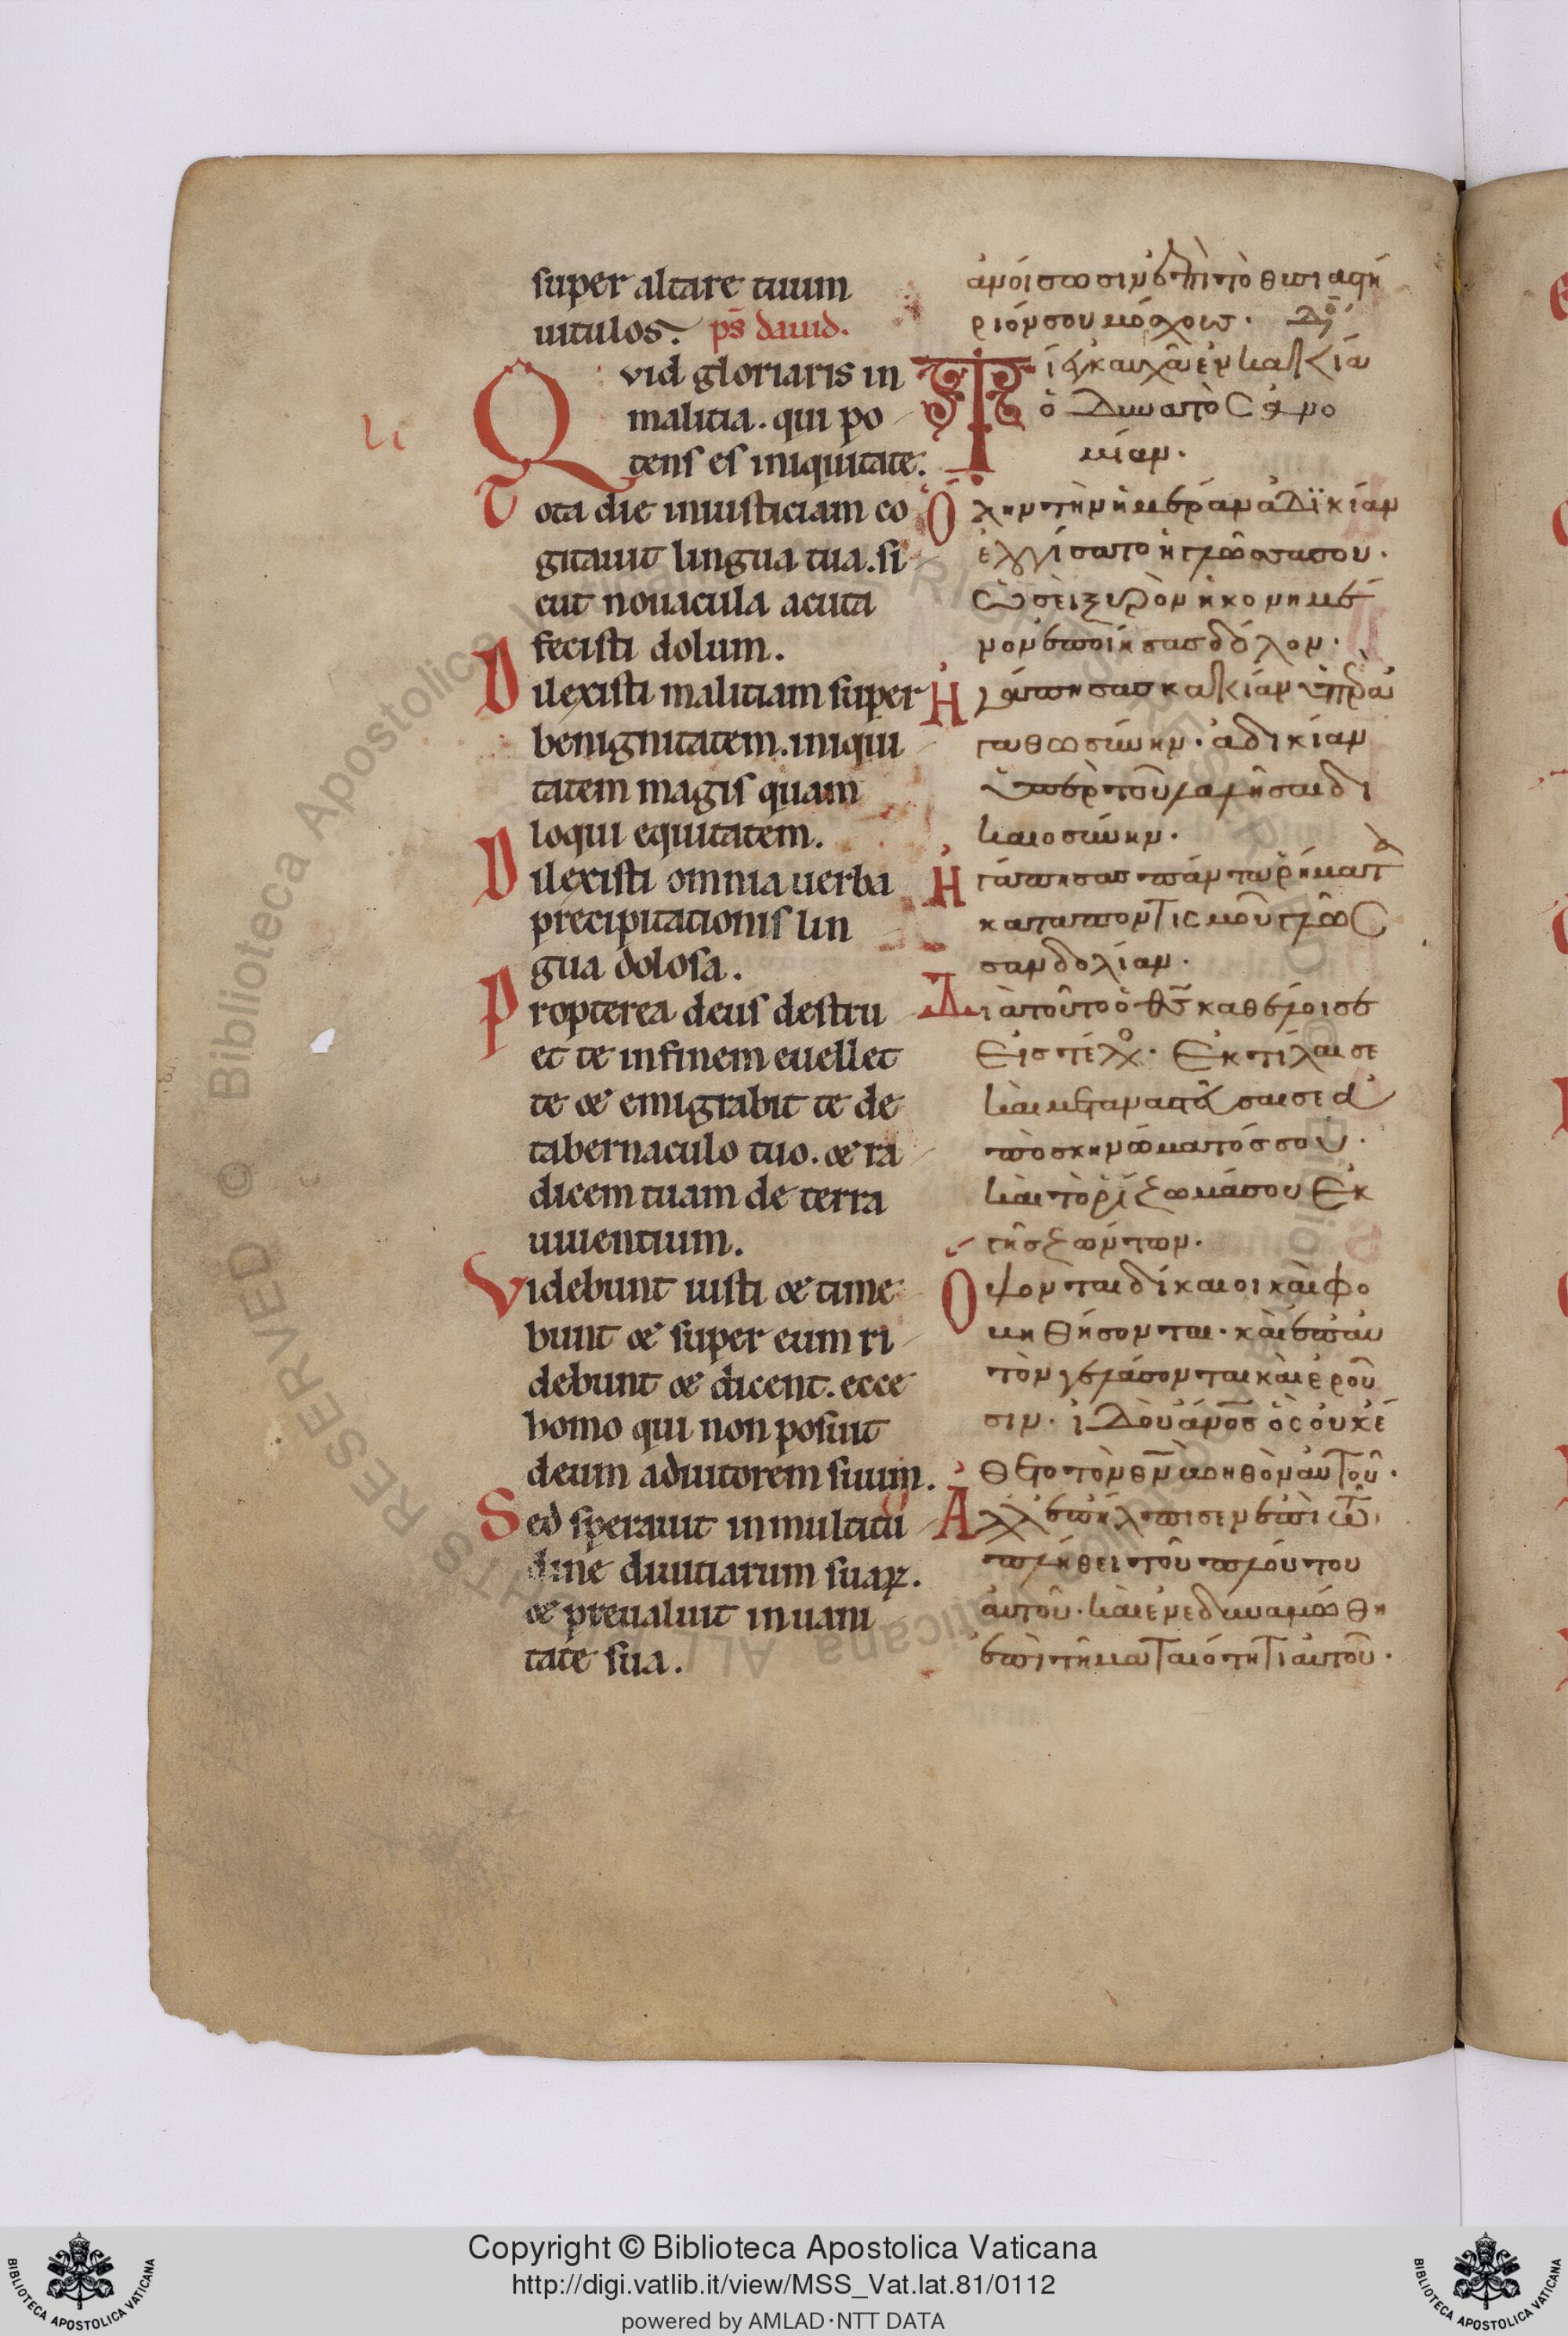 super altare tuum
uitulos. ps̄ dauid.
Qvid gloriaris in
malitia. qui po
tens es iniquitate.
li
Tota die iniusticiam co
gitauit lingua tua. si
cut nouacula acuta
fecisti dolum.
Dilexisti malitiam super
benignitatem. iniqui
tatem magis quam
loqui equitatem.
Dilexisti omnia uerba
precipitationis lin
gua dolosa.
Propterea deus destru
et te in finem euellet
te & emigrabit te de
tabernaculo tuo. & ra
dicem tuam de terra
uiuentium.
Videbunt iusti & time
bunt & super eum ri
debunt & dicent. ecce
homo qui non posuit
deum adiutorem suum.
Sed sperauit in multitu
dine diuitiarum suaꝝ.
& preualuit in uani
tate sua.
ἀνοίσωσιν ἐπὶ τὸ θυσιαστή
ριόν σου μόσχους.
Τί ἐγκαυχᾶ ἐν κακία
ὁ δυνατὸς ἀνο
μίαν.
Ὅλην τὴν ἡμέραν ἀδϊκίαν
ἐλογίσατο ἡ γλῶσσα σου.
Ὡσεὶ ξυρὸν ἠκονημέ
νον ἐποίησας δόλον.
Ἠγάπησας κακίαν ὑπὲρ ἀ
γαθωσύνην. ἀδικίαν
ὑπὲρ τοῦ λαλῆσαι δι
καιοσύνην.
Ἠγάπησας πάντα ρήματα
καταποντισμοῦ γλῶσ
σαν δολίαν.
Διὰ τοῦτο ὁ θς̄ καθέλοι σε
Εἰς τέλος. Ἐκτίλαι σε
καὶ μεταναστεύσαι σε ἀ
πὸ σκηνώματός σου.
καὶ τὸ ρίζωμά σου Ἐκ
γῆς ζώντων.
Ὄψονται δίκαιοι καὶ φο
βηθήσονται. καὶ ἐπ' αυ
τὸν γελάσονται καὶ ἐροῦ
σιν. ἰδοὺ ἄνος̄ ὃς οὐκ ἔ
θετο τὸν θν̄ βοηθὸν αὐτοῦ.
Ἀλλ' ἐπήλπισεν ἐπὶ τῶ
πλήθει τοῦ πλούτου
αὐτοῦ. καὶ ἐνεδυναμώθη
ἐπὶ τῆ ματαιότητι αὐτοῦ.
Biblioteca Apostolica Vaticana ALL RIGHTS RESERVED ©
Copyright © Biblioteca Apostolica Vaticana
http://digi.vatlib.it/view/MSS_Vat.lat.81/0112
powered by AMLAD·NTT DATA
BIBLIOTECA APOSTOLICA VATICANA
BIBLIOTECA APOSTOLICA VATICANA